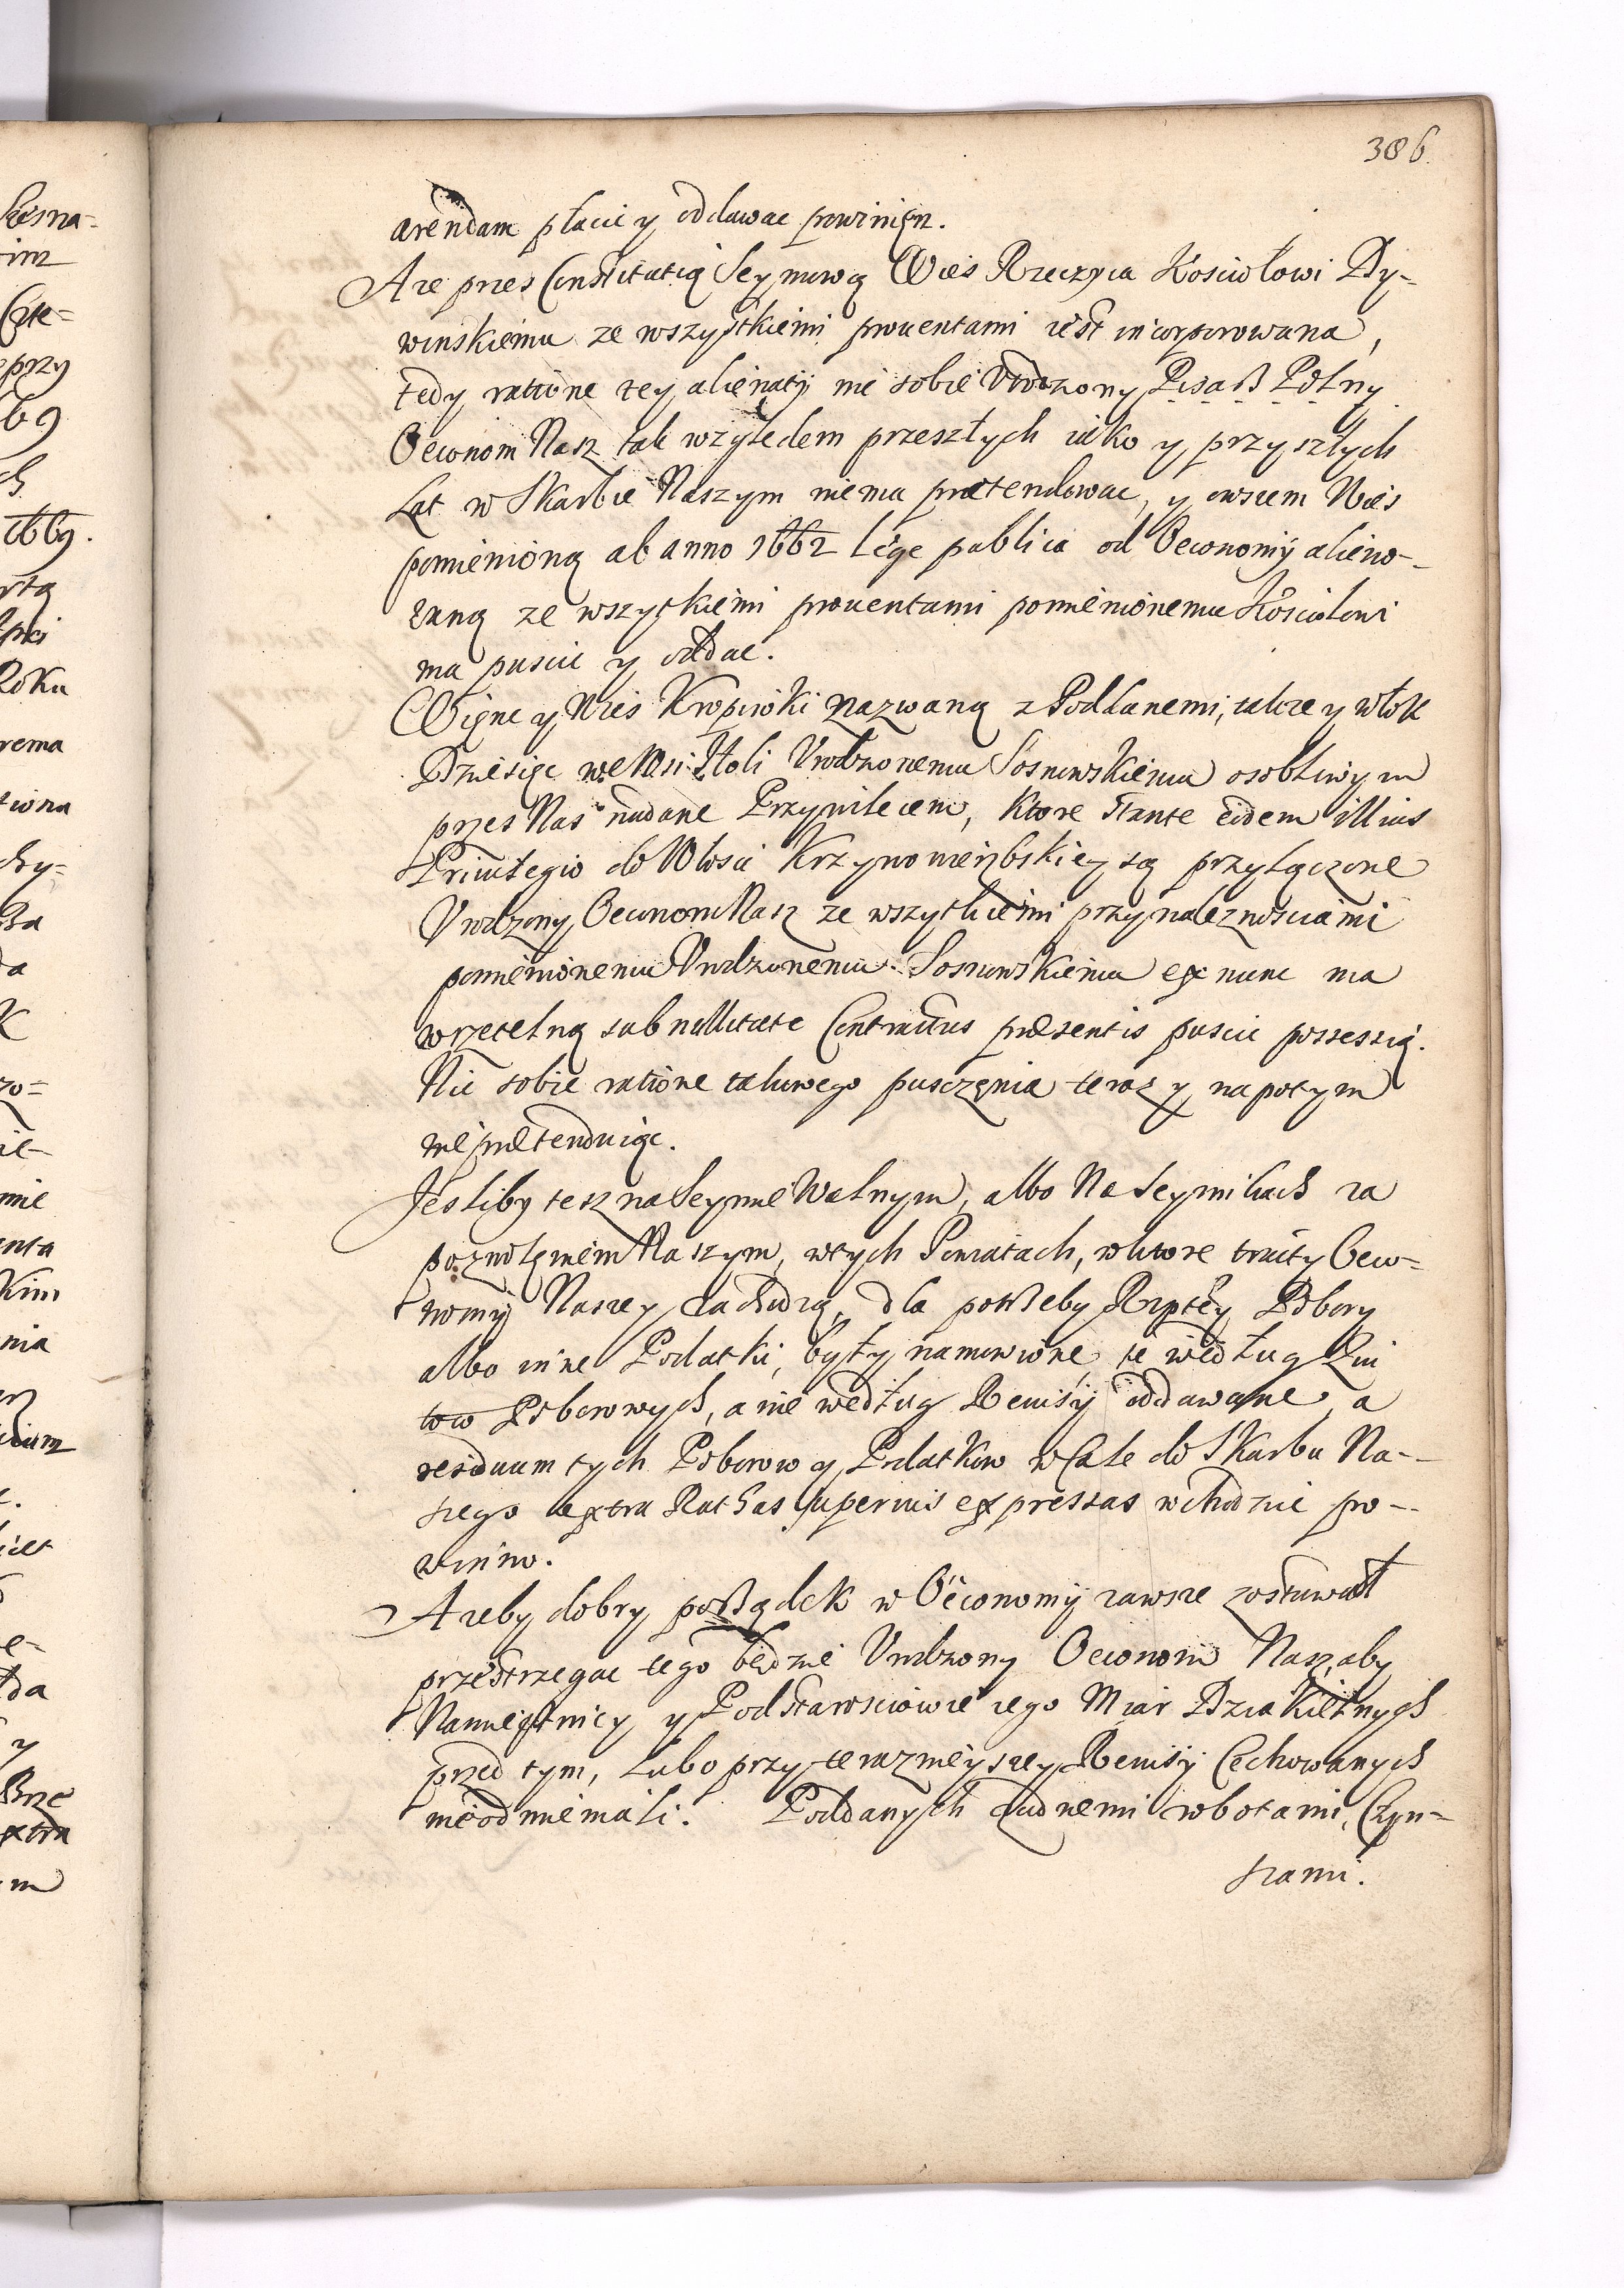 386.
arendam płacic y oddawac powinien.
A ze przes Constitutią Seymową Wies Rzeczyca Kosciołowi Dy-
winskiemu ze wszystkiemi prouentami iest incorporowana,
tedy ratione tey alienatij nic sobie Urodzony Pisarz Polny
Oeconom Nasz tak względem przeszłych iako y przyszłych
Lat w Skarbie Naszym niema prætendowac, y owszem Wies
pomienioną ab anno 1662 lege publica od Oeconomij alieno-
waną ze wszytkiemi prouentami pomienionemu Kosciołowi
ma puscic y oddac.
Więc y Wies Kropiwki nazwaną z Poddanemi, takze y włok
Dziesięc we Wsi Holi Urodzonemu Sosnowskiemu osobliwym
przes Nas nadane Przywileiem, Ktore stante eidem illius
Priuilegio do Włosci Krzywowierzbskiey są przyłączone
Urodzony Oeconom Nasz ze wszytkiemi przynaleznosciami
pomienionemu Urodzonemu Sosnowskiemu ex nunc ma
w rzetelną sub nullitate Contractus præsentis puscic possessią.
Nic sobie ratione takowego pusczenia teraz y napotym
nie prætenduiąc.
Jesliby tesz na Seymie Walnym, albo Na Seymikach za
pozwolęniem Naszym, w tych Powiatach, w ktore tracty Oeco-
nomij Naszey zachodzą, dla potrzeby Rzptey Pobory
albo inne Podatki, były namowione, te według Kwi
tow Poborowych, a nie według Rewisij oddawane, a
residuum tych Poborow y Podatkow w Cale do Skarbu Na-
szego extra Rathas superius expressas wchodzic po-
winno.
A zeby dobry porządek w Oeconomij zawsze zostawał
przestrzegac tego będzie Urodzony Oeconom Nasz, aby
Namiestnicy y Podstarosciowie iego Miar Dziakielnych
przed tym, lubo przy teraznieyszey Rewisij Cechowanych
nie odmieniali. Poddanych Cudnemi robotami, Czyn-
szami.